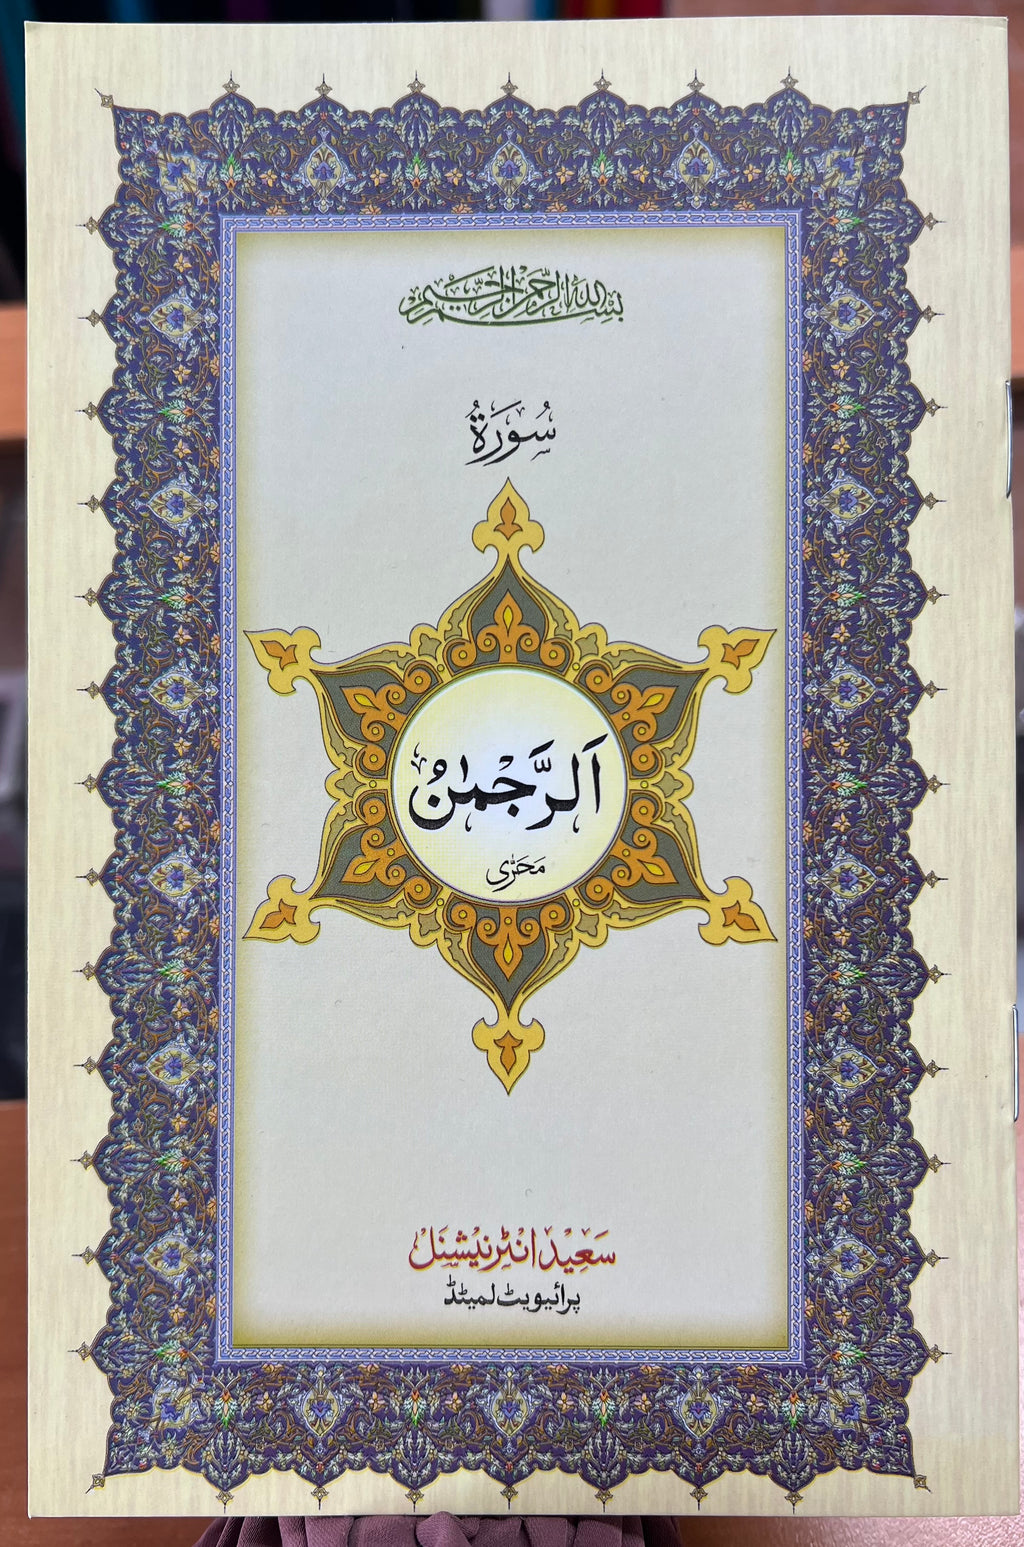 بسم الله الرحمن الرحيم
سُورَةُ
اَلرَّحْمٰنُ
سَعِیْد انٹرنیشنل
پرائیویٹ لمیٹڈ